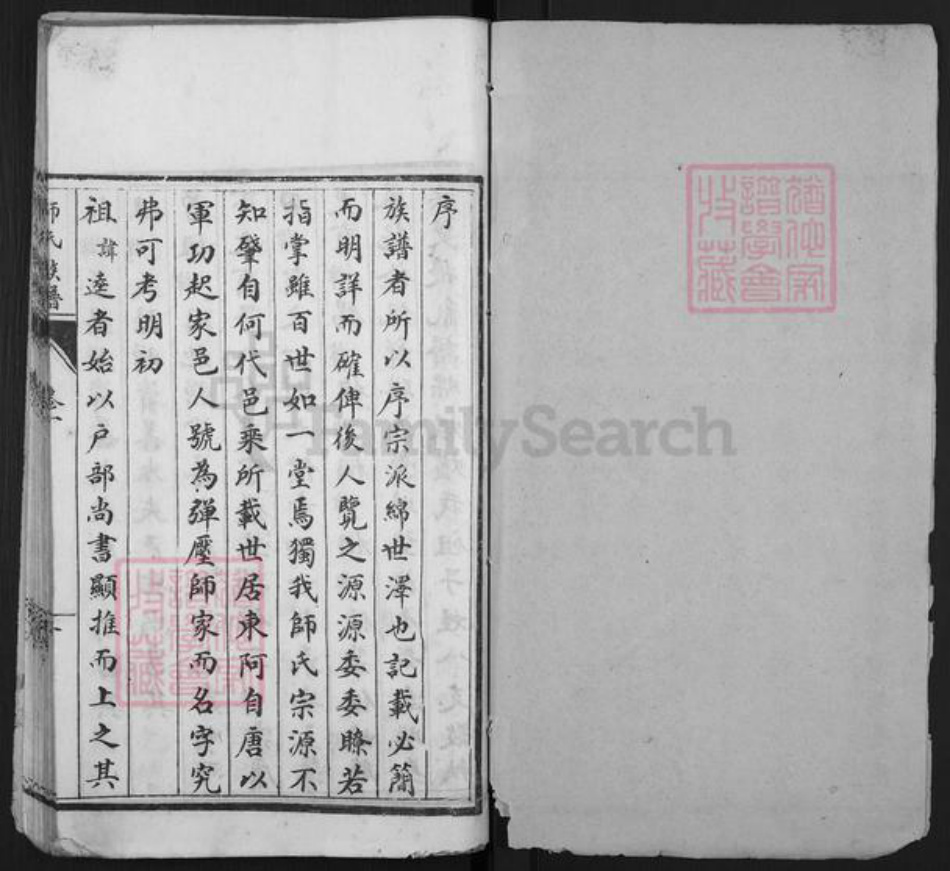 序
族譜者所以序宗派綿世澤也記載必簡
而明詳而確俾後人覽之源源委委瞭若
指掌雖百世如一堂焉獨我師氏宗源不
知肇自何代邑乘所載世居東阿自唐以
軍功起家邑人號為彈壓師家而名字究
弗可考明初
祖諱逵者始以戶部尚書顯推而上之其
師氏族譜
FamilySearch
譜學會
收藏